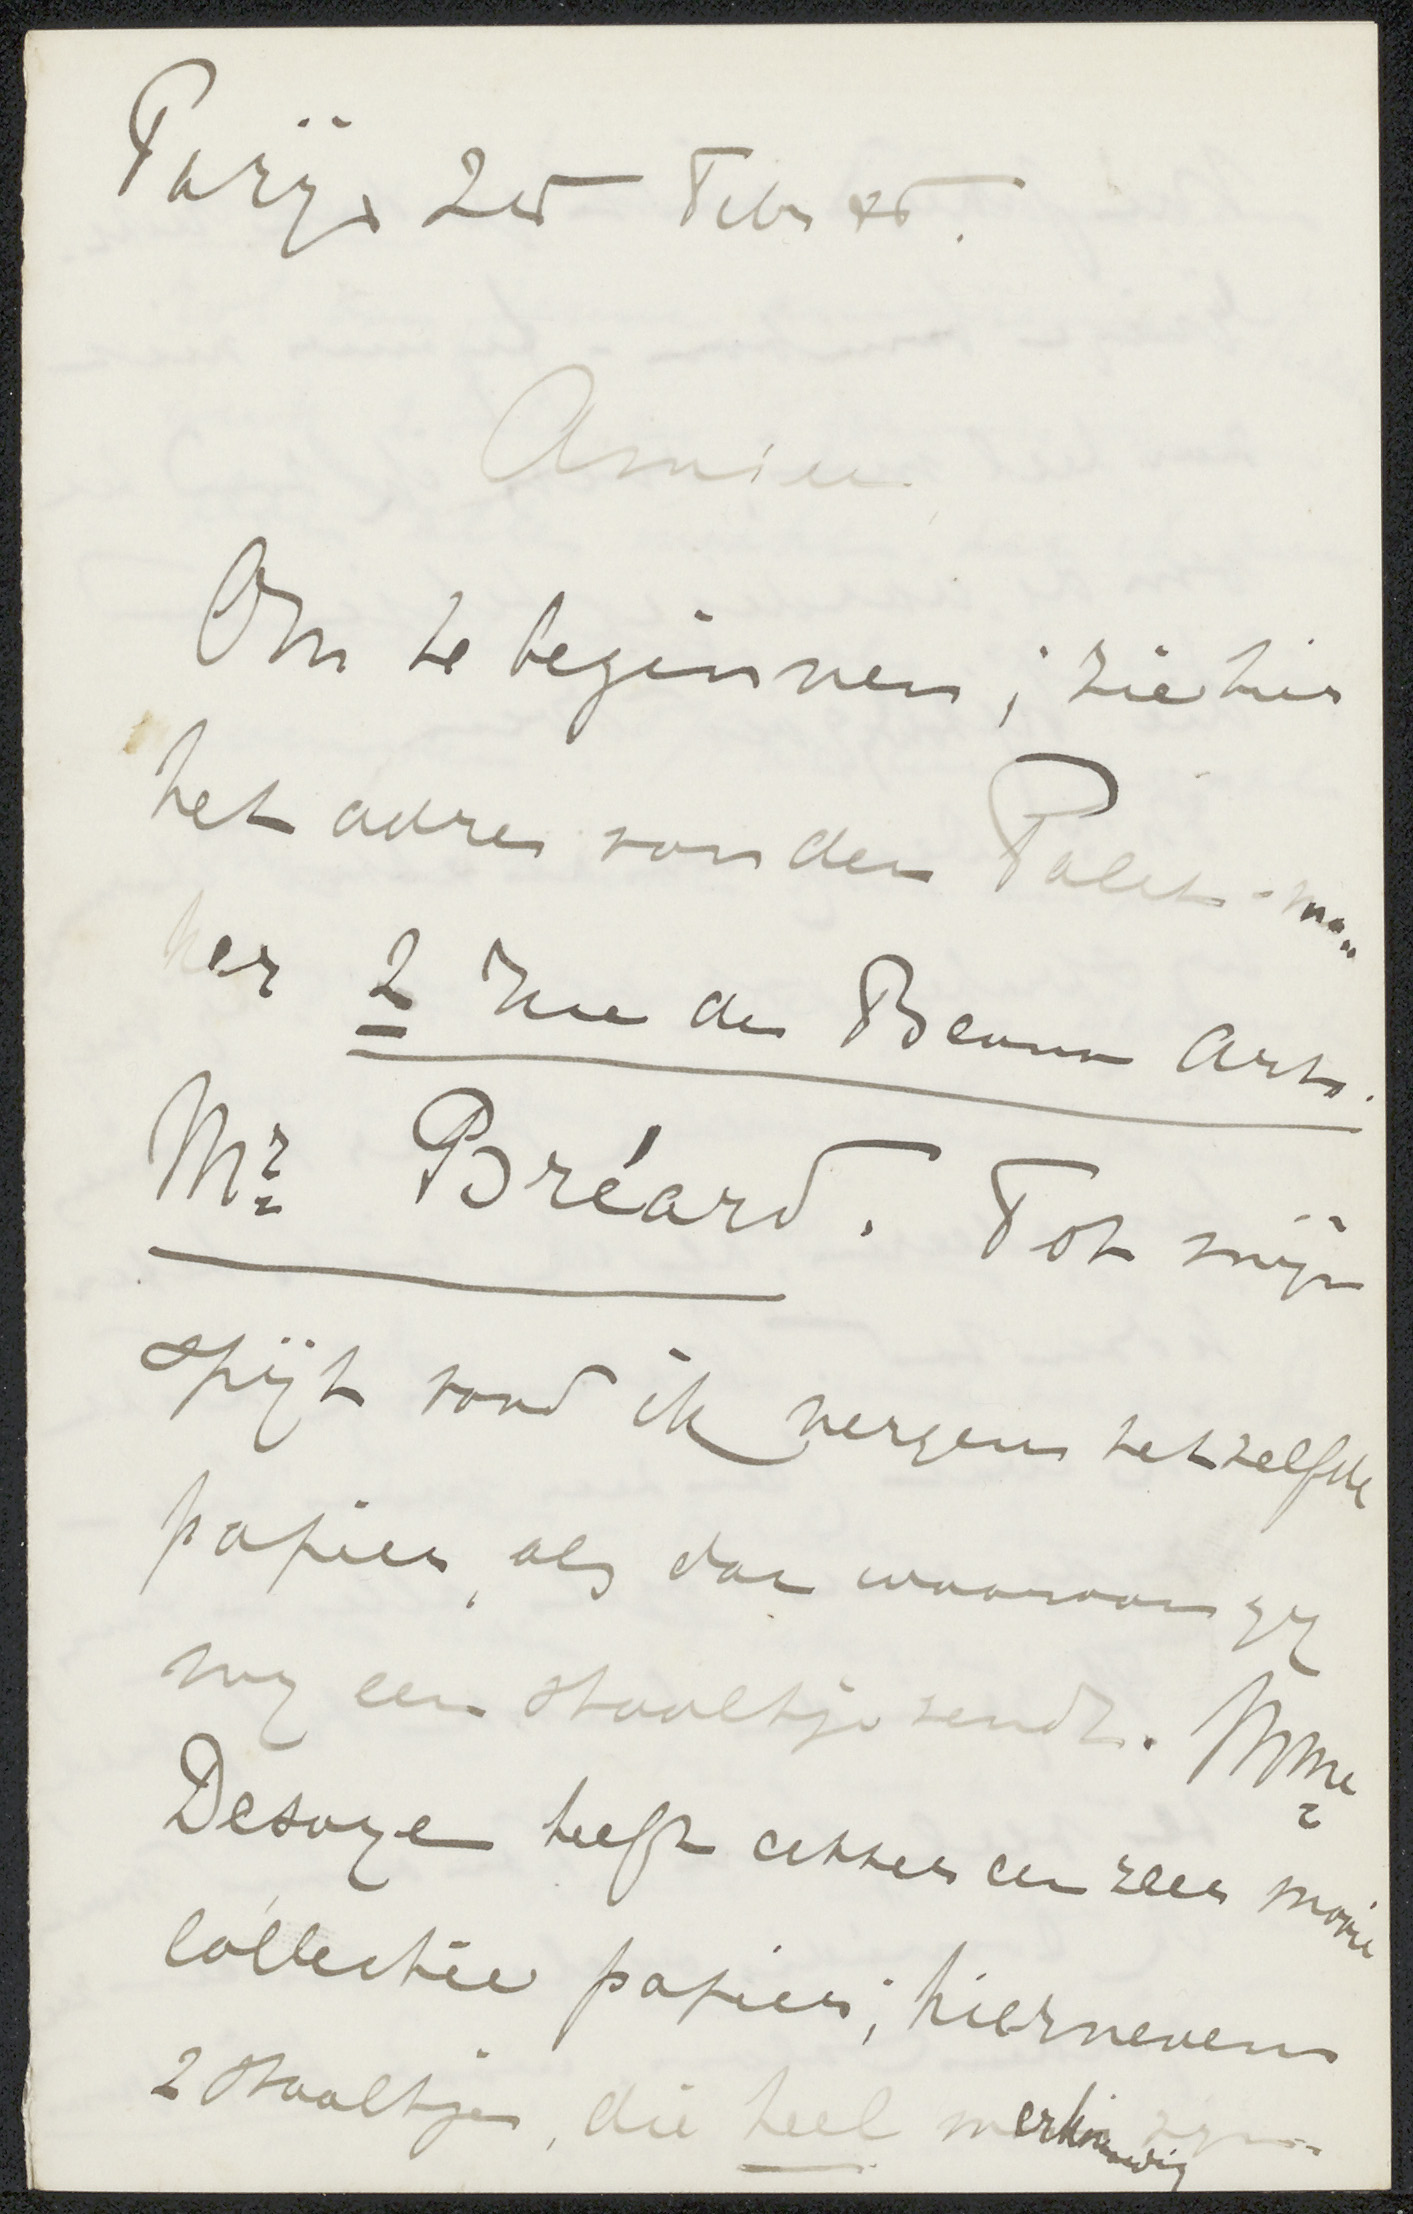 Parijs 25 Febr 85.
Amice,
Om te beginnen; ziehier
het adres van den Palet-ma„
ker 2 Rue des Beaux Arts.
Mr Bréard. Tot mijn
spijt vond ik nergens hetzelfde
papier, als dat waarvan gij
mij een staaltje zendt. Mme
Desoye heeft echter een zeer mooie
collectie papier; hiernevens
2 staaltjes, die heel merkwaardig zijn.